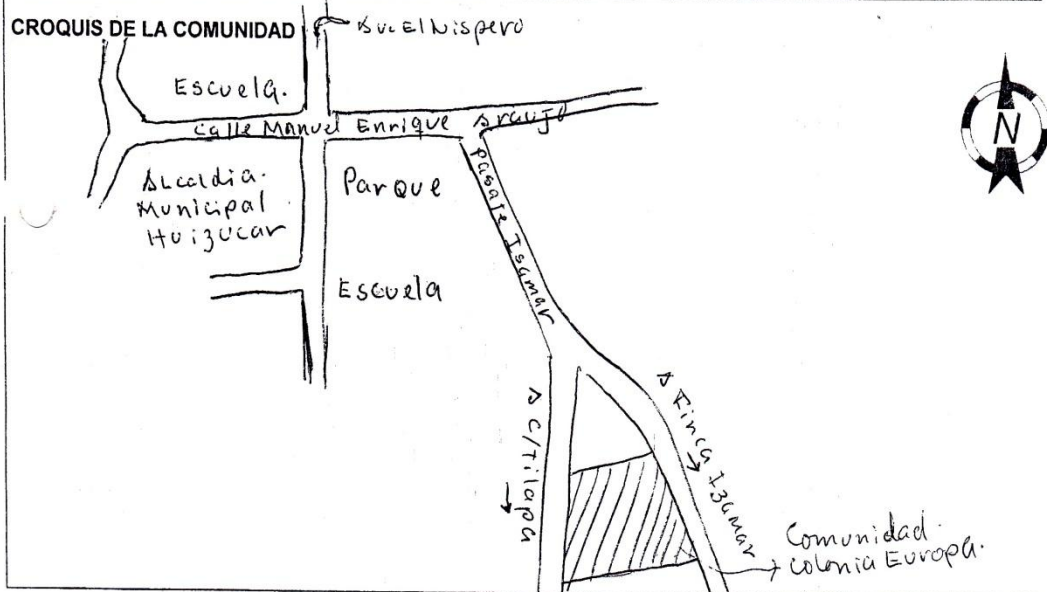 CROQUIS DE LA COMUNIDAD
El Nispero
Escuela.
Calle Manuel Enrique Araujo
N
Alcaldia.
Municipal
Huizucar
Parque
Pasaje Isamar
Escuela
A C/Tilapa
A Finca Izamar
Comunidad.
Colonia Europa.